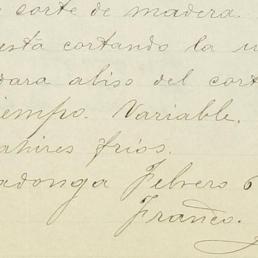 corte de madera.
está cortando la
para aliso del cort
iempo. Variable.
ahires frios.
adonga Febrero 6
Franco.